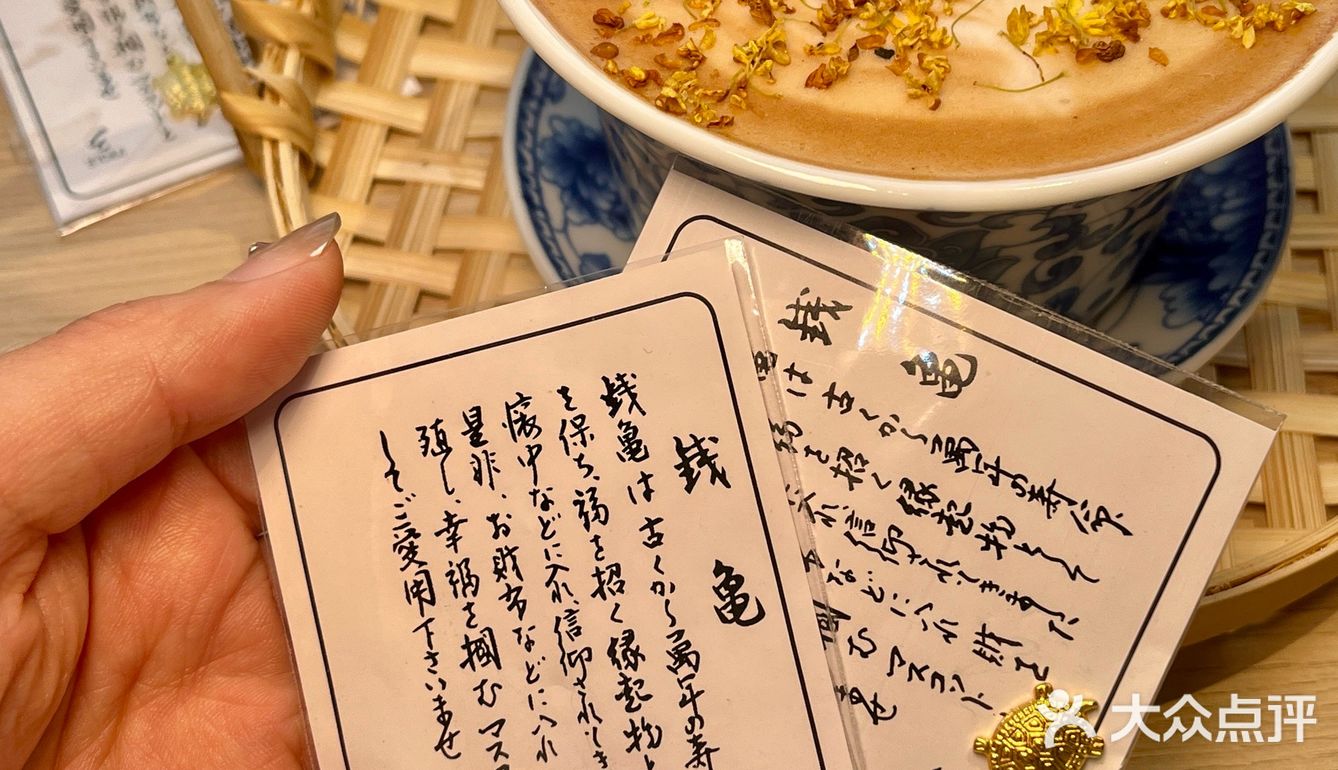 銭亀
銭亀は古くから萬年の寿
を保ち、福を招く縁起物と
懐中などに入れ、信仰されてき
是非、お財布などに入れ
殖し、幸福を掴むマス
してご愛用下さいませ
銭亀
亀は古くから萬年の寿命
福を招く縁起物として
入れ信仰されてきました
などに入れ財を
掴むマスコット
ませ
大众点评